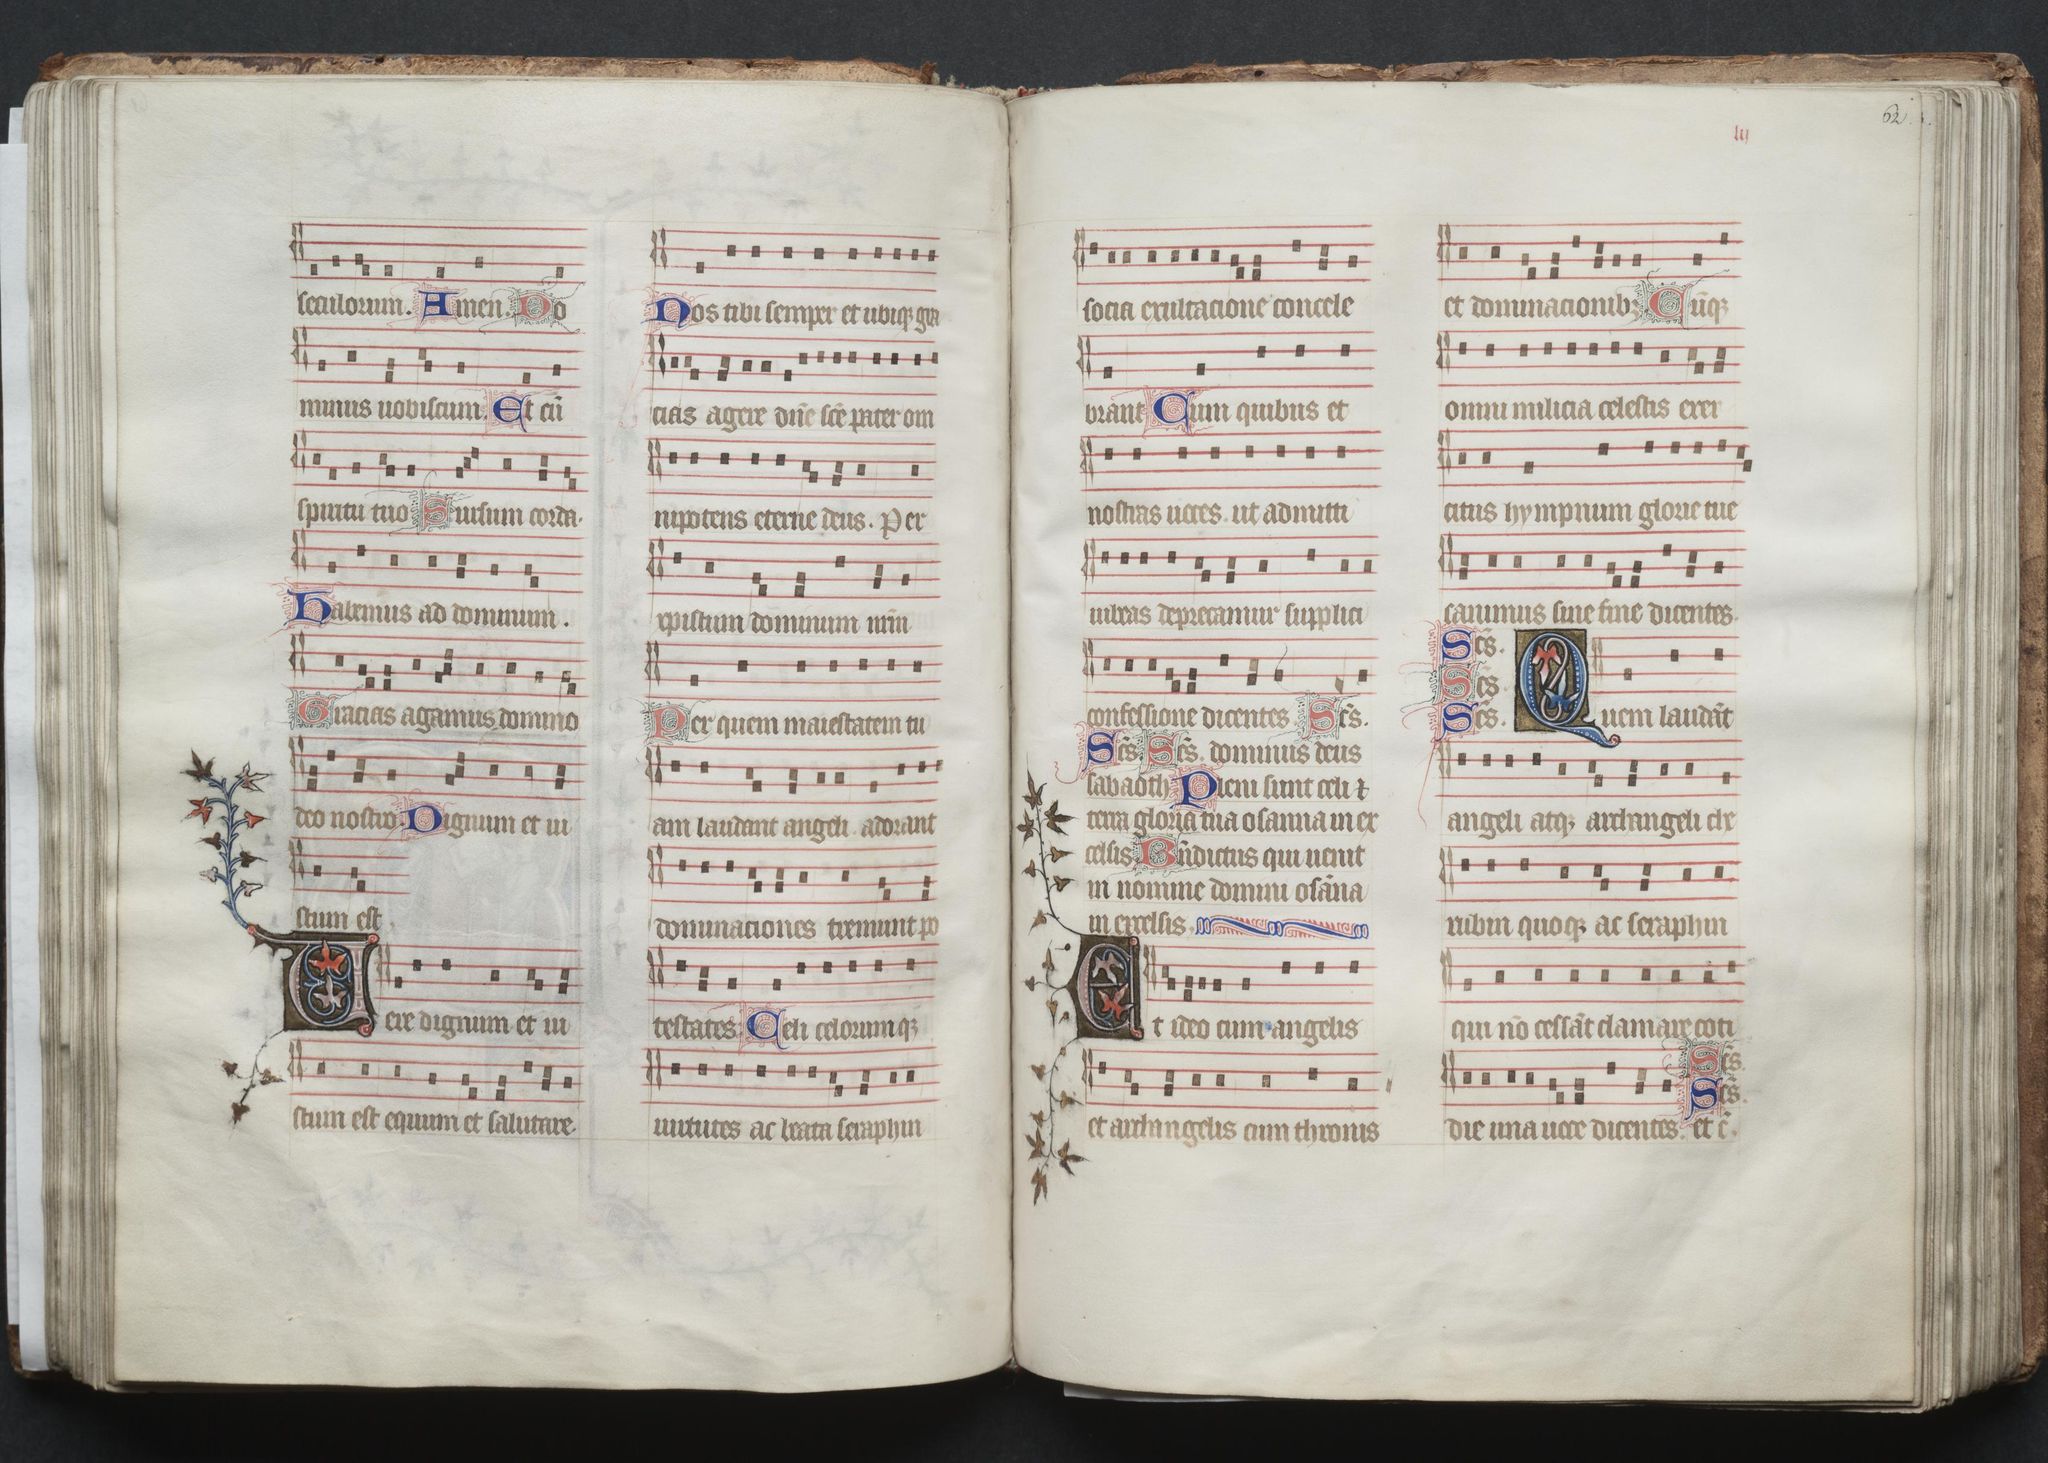 seculorum. Amen. Do
minus uobiscum. Et cū
spiritu tuo Sursum corda.
Habemus ad dominum.
Gracias agamus domino
deo nostro. Dignum et iu
stum est.
Uere dignum et iu
stum est equum et salutare.
Nos tibi semper et ubiqꝫ gra
cias agere dn̄e sc̄e pater om
nipotens eterne deus. Per
xpistum dominum nr̄m
Per quem maiestatem tu
am laudant angeli. adorant
dominaciones tremunt po
testates. Celi celorumqꝫ
uirtutes ac beata seraphin
62.
iij
socia exultacione concele
brant Cum quibus et
nostras uoces. ut admitti
iubeas deprecamur supplici
confessione dicentes. Sc̄s.
Sc̄s. Sc̄s. dominus deus
sabaoth Pleni sunt celi ⁊
terra gloria tua osanna in ex
celsis. Bn̄dictus qui uenit
in nomine domini osān̄a
in excelsis.
Et ideo cum angelis
et archangelis cum thronis
et dominacionibꝫ Cūqꝫ
omni milicia celestis exer
citus hympnum glorie tue
canimus sine fine dicentes.
Sc̄s.
Sc̄s.
Sc̄s. Quem laudāt
angeli atqꝫ archangeli che
rubin quoqꝫ ac seraphin
qui nō cessāt clamare coti
Sc̄s.
Sc̄s.
die una uoce dicentes. et c̄.